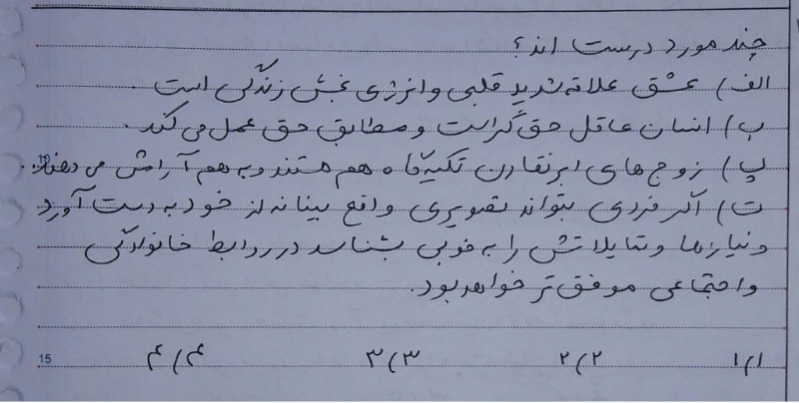 چند مورد درست اند؟
الف) عشق علاقه شدید قلبی و انرژی بخش زندگی است.
ب) انسان عاقل حق گراست و مطابق حق عمل می کند.
پ) زوج های ایرانی تکیه گاه هم هستند و به هم آرامش می دهند.
ت) اگر فردی بتواند تصویری واقع بینانه از خود به دست آورد
و نیازها و تمایلاتش را به خوبی بشناسد در روابط خانوادگی
و اجتماعی موفق تر خواهد بود.
۱) ۱ ۲) ۲ ۳) ۳ ۴) ۴
15